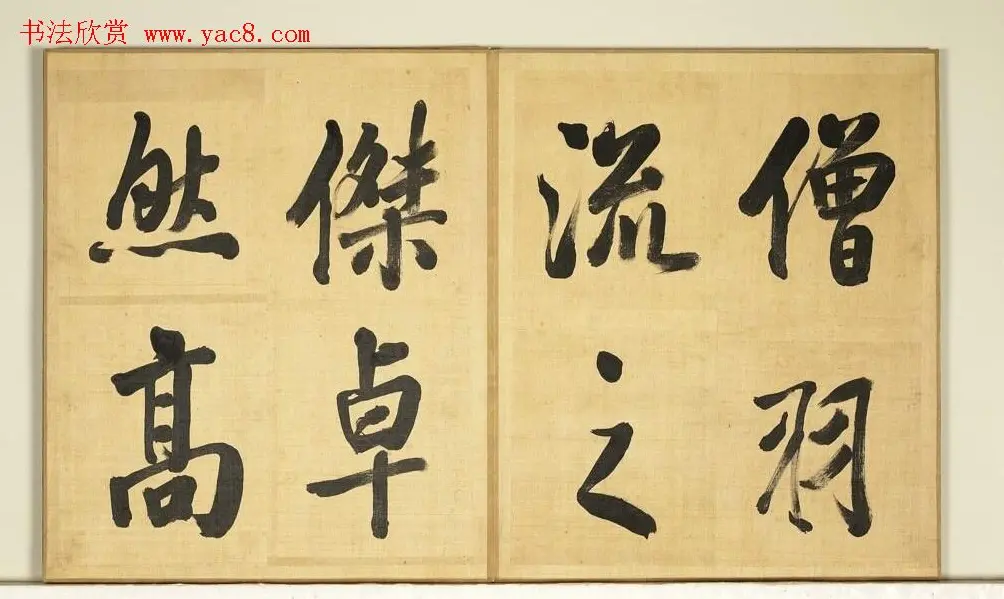 书法欣赏 www.yac8.com
僧羽
流之
傑卓
然高